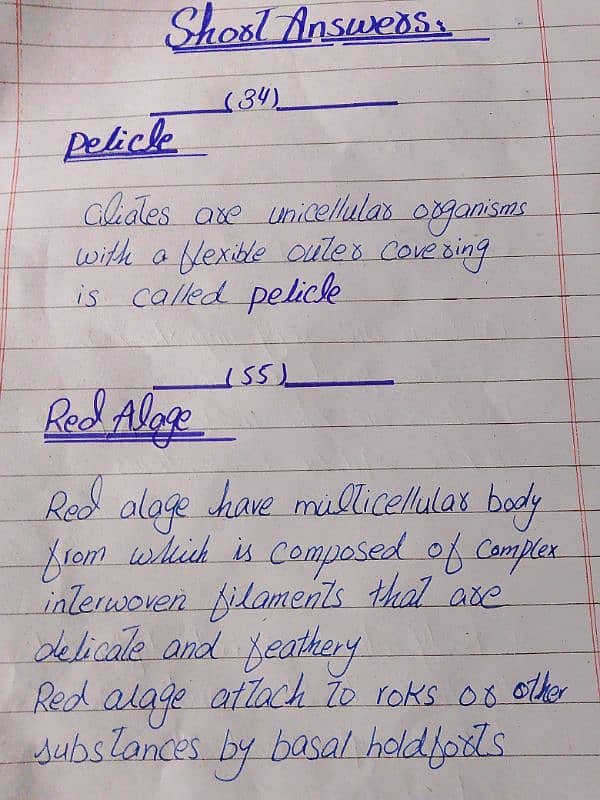 Short Answers:
(34)
Pelicle
Ciliates are unicellular organisms
with a flexible outer covering
is called pelicle
(55)
Red Alage
Red alage have multicellular body
from which is composed of complex
interwoven filaments that are
delicate and feathery
Red alage attach to roks or other
substances by basal holdforts